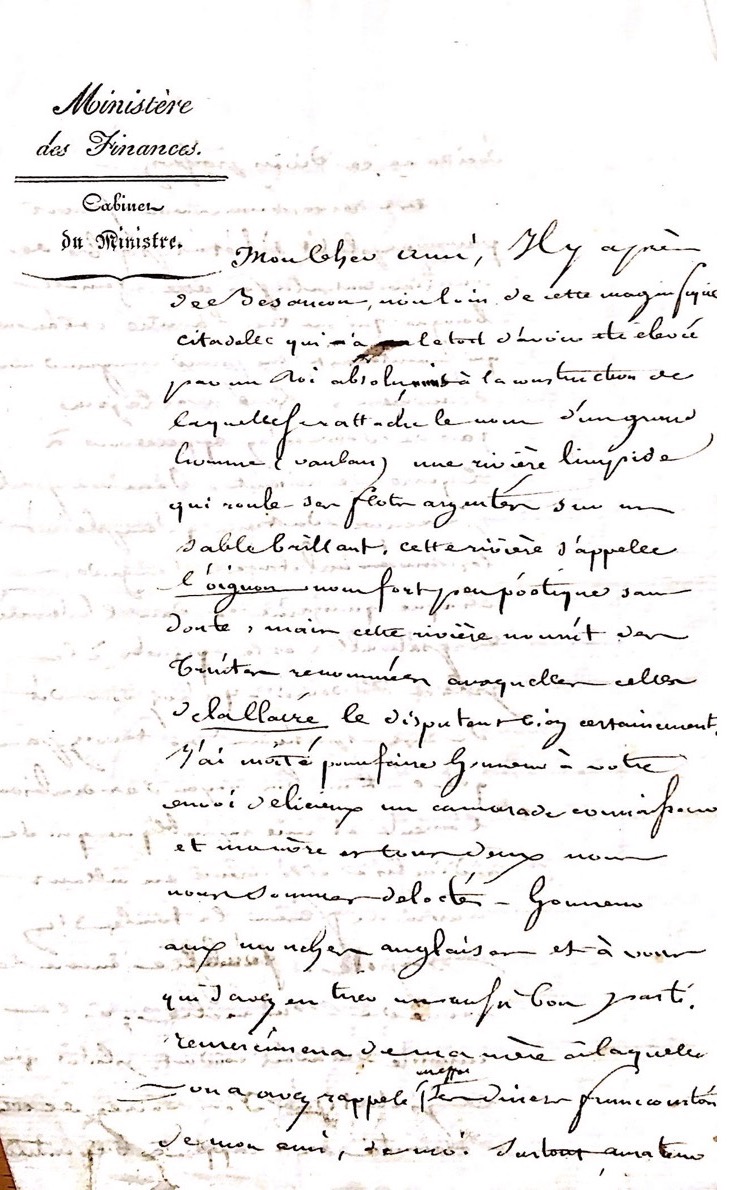 Ministère
des Finances.
Cabinet
du Ministre.
Mon Cher ami, Il y a près
de Besançon, non loin de cette magnifique
citadelle qui a le tort d'avoir été élevée
par un Roi absolu mais à la construction de
laquelle se rattache le nom d'un grand
homme (vauban) une rivière limpide
qui roule ses flots argentés sur un
sable brillant. cette rivière s'appelle
l'oignon nom fort peu poétique sans
doute, mais cette rivière nourrit des
Truites renommées auxquelles celles
de le disputent bien certainement.
J'ai invité pour faire honneur à votre
envoi délicieux un camarade connaisseur
et ma mère et tous deux nous
nous sommes délectés – honneur
aux mouches anglaises et à vous
qui savez en tirer un aussi bon parti.
remerciemens de ma mère à laquelle
vous avez rappelé les diners francomtois
de mon ami, de moi surtout amateur